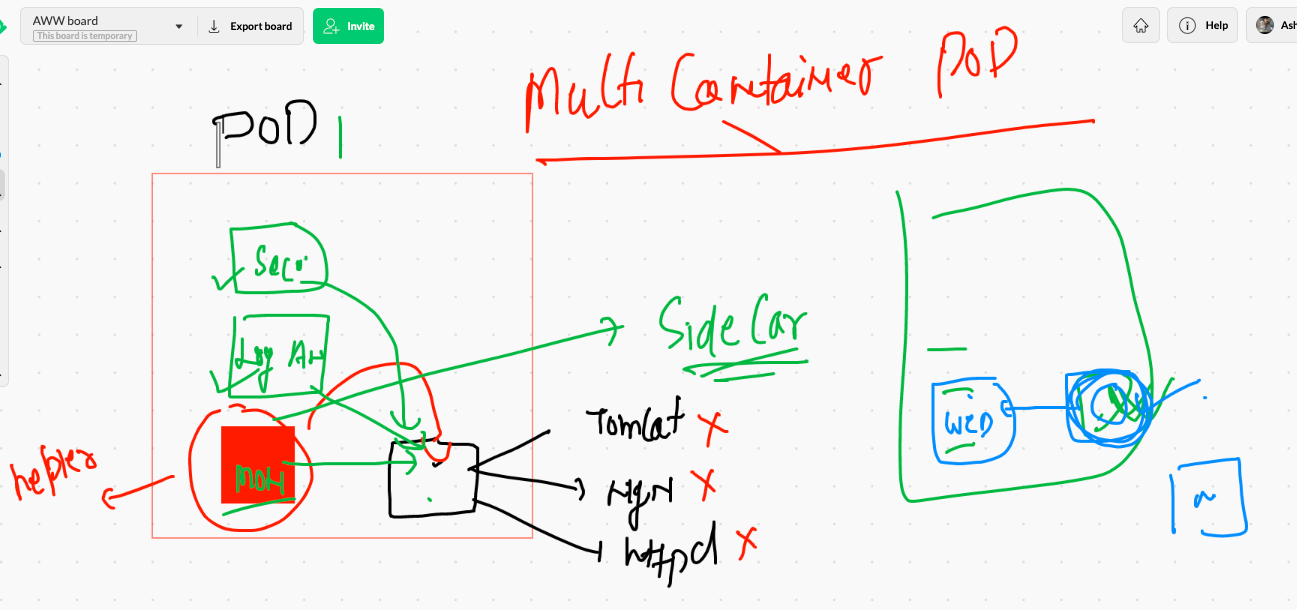 AWW board
This board is temporary
Export board
Invite
Help
Multi Container POD
POD
Secu
Log An
SideCar
MON
helper
Tomcat X
NgN X
httpd X
WEB